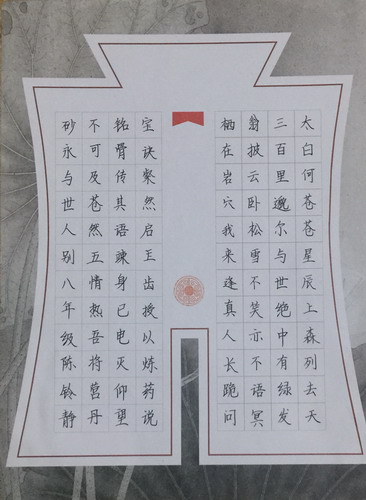 太白何苍苍星辰上森列去天
三百里邈尔与世绝中有绿发
翁披云卧松雪不笑亦不语冥
栖在岩穴我来逢真人长跪问
宝诀粲然启王齿授以炼药说
铭骨传其语竦身已电灭仰望
不可及苍然五情热吾将营丹
砂永与世人别八年级陈铃静